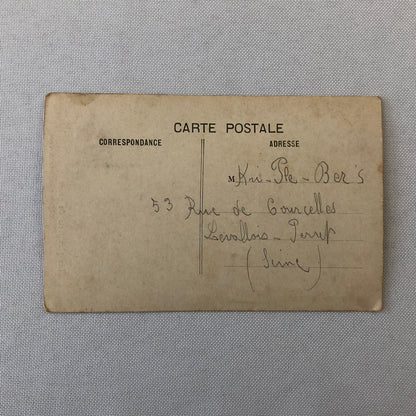 CARTE POSTALE
CORRESPONDANCE
ADRESSE
M Kri-Ple-Ber's
53 Rue de Courcelles
Levallois-Perret
(Seine)